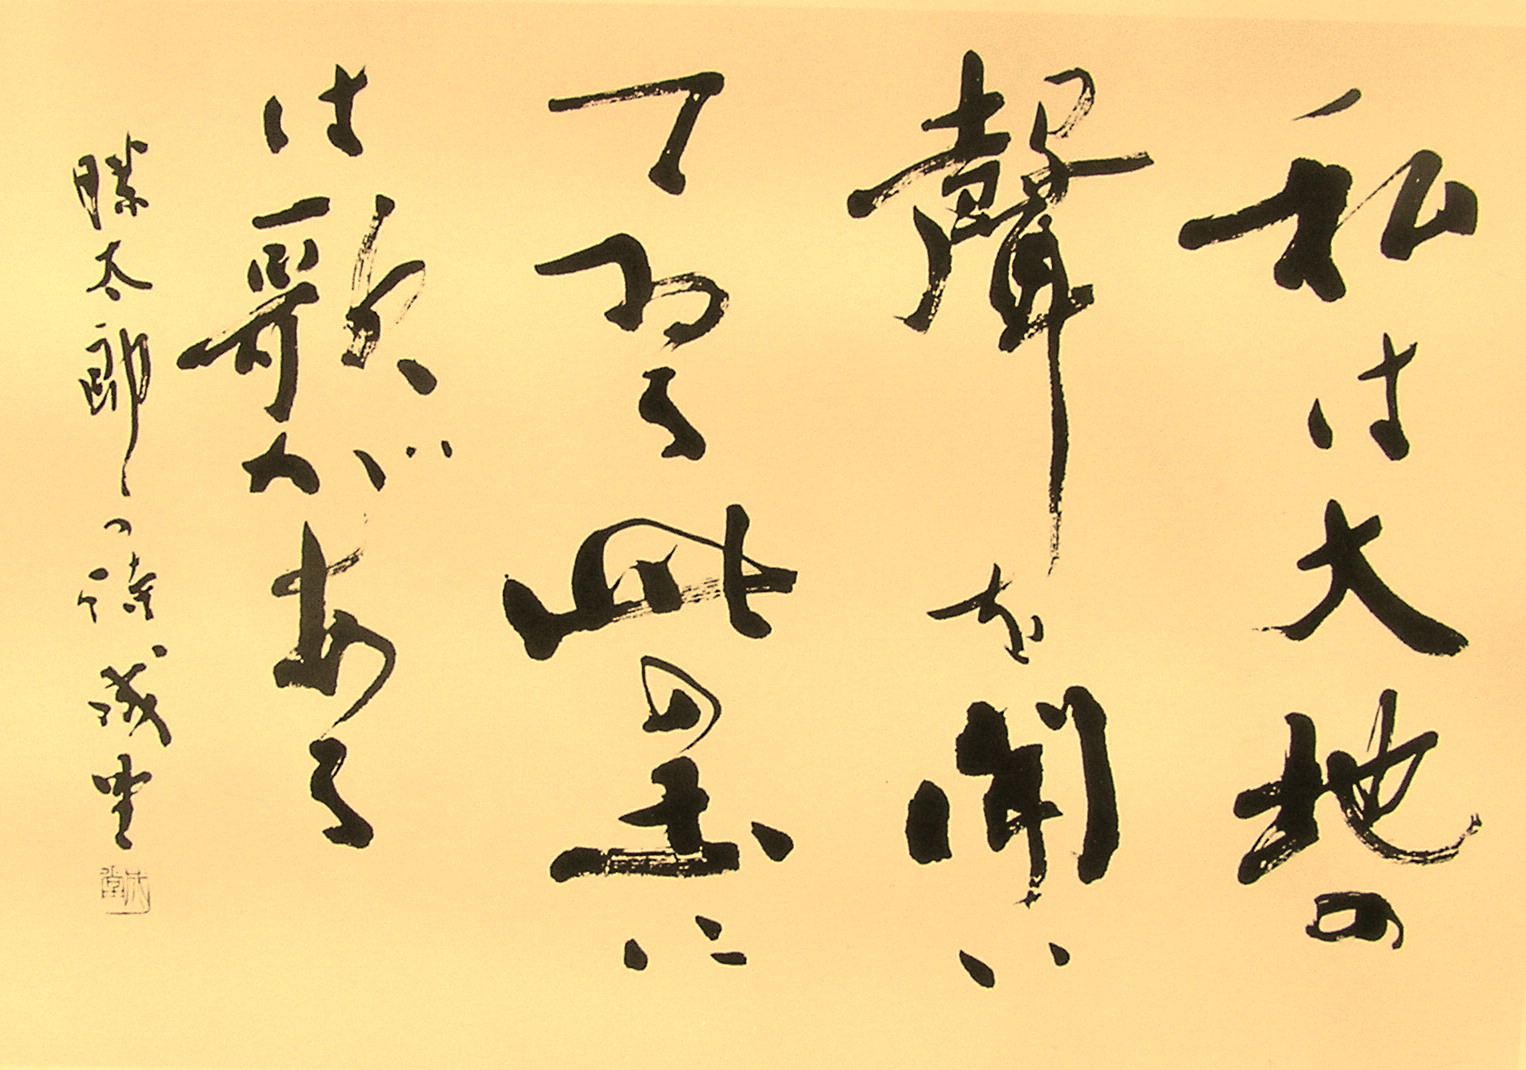 私は大地の
聲を聞い
てゐる此の土に
は歌がある
勝太郎の詩